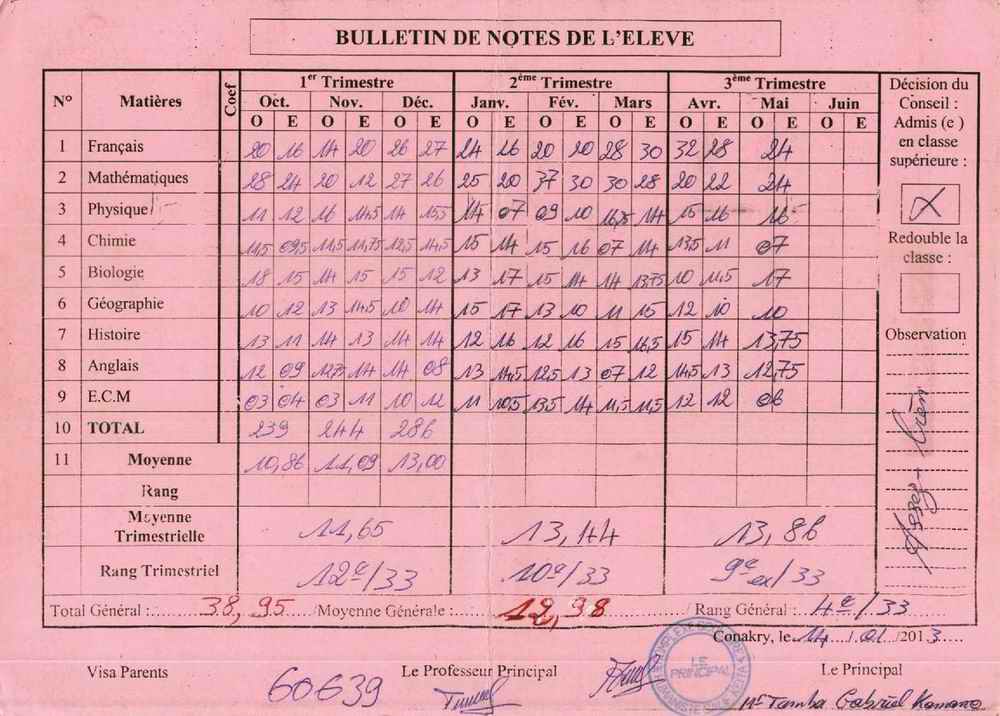 BULLETIN DE NOTES DE L'ELEVE
N° Matières Coef 1er Trimestre 2ème Trimestre 3ème Trimestre
Oct. Nov. Déc. Janv. Fév. Mars Avr. Mai Juin
O E O E O E O E O E O E O E O E O E
1 Français 20 16 14 20 26 27 24 26 20 20 28 30 32 28 24
2 Mathématiques 28 24 20 12 27 26 25 20 37 30 30 28 20 22 24
3 Physique 11 12 16 14,5 14 15,5 14 07 09 10 16,75 14 15 16 16
4 Chimie 11,5 09,5 11,5 11,75 12,5 14,5 15 14 15 16 07 14 13,5 11 07
5 Biologie 18 15 14 15 15 12 13 17 15 14 14 13,75 10 11,5 17
6 Géographie 10 12 13 14,5 10 14 15 17 13 10 11 15 12 10 10
7 Histoire 13 11 14 13 14 14 12 16 12 16 15 16,5 15 14 13,75
8 Anglais 12 09 12,75 14 14 08 13 14,5 12,5 13 07 12 14,5 13 12,75
9 E.C.M 03 04 03 11 10 12 11 10,5 13,5 14 11,5 11,5 12 12 06
10 TOTAL 239 244 286
11 Moyenne 10,86 11,09 13,00
Rang
Moyenne
Trimestrielle 11,65 13,44 13,86
Rang Trimestriel 12e/33 10e/33 9e ex/33
Décision du
Conseil :
Admis (e )
en classe
supérieure :
X
Redouble la
classe :
Observation
Assez bien
Total Général : 38,95 /Moyenne Générale : 12,98 / Rang Général : 4e/33
Conakry, le 14/01/2013
Visa Parents Le Professeur Principal Le Principal
60639
LE
PRINCIPAL
Mr Tamba Gabriel Kamano